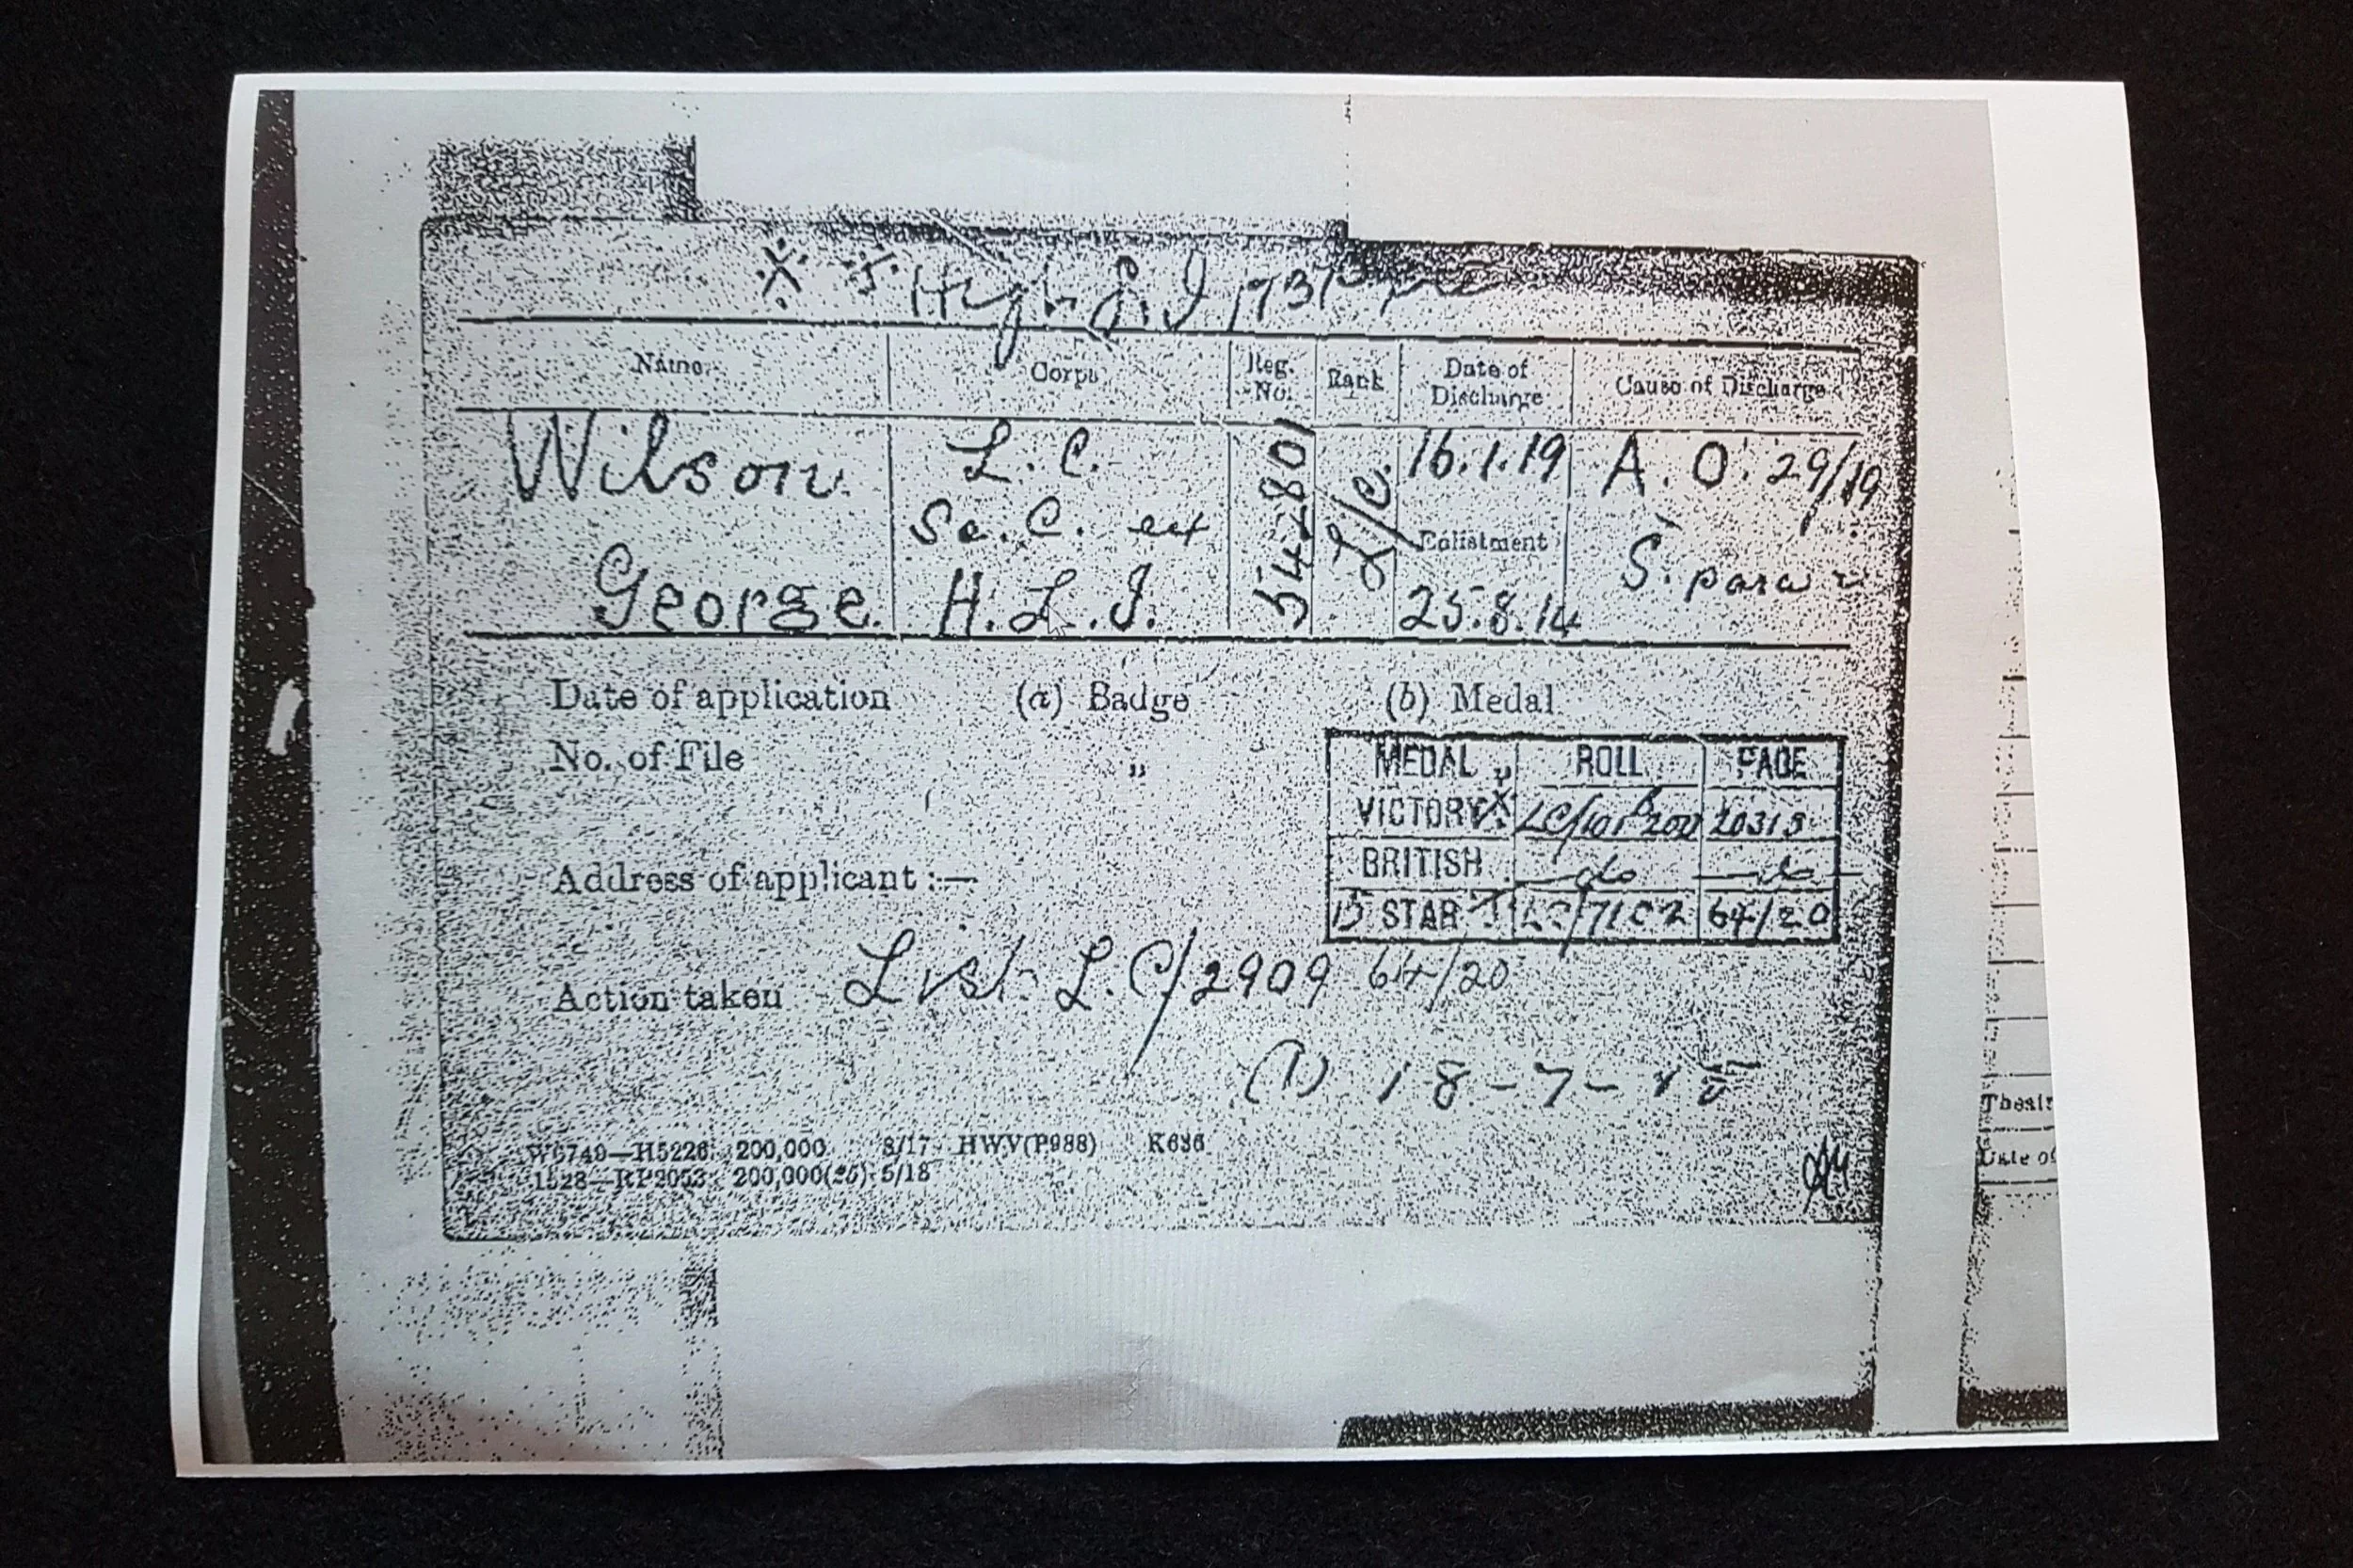 ※ ※ High L I 17317 pte
Name. Corps Reg. No. Rank Date of Discharge Cause of Discharge
Wilson L. C. 542801 L/C. 16.1.19 A. O. 29/19
Se. C. ex Enlistment S. para
George. H. L. I. 25.8.14
Date of application (a) Badge (b) Medal
No. of File " "
MEDAL ROLL PAGE
VICTORY X LC/101 B200 20315
BRITISH — do — do —
15 STAR LC/71C2 64/20
Address of applicant :—
Action taken List L.C/2909 64/20
(1) 18-7-15
W6749—H5226 200,000 8/17 HWV(P988) K636
1528—RP2053 200,000(26) 5/18
Date of